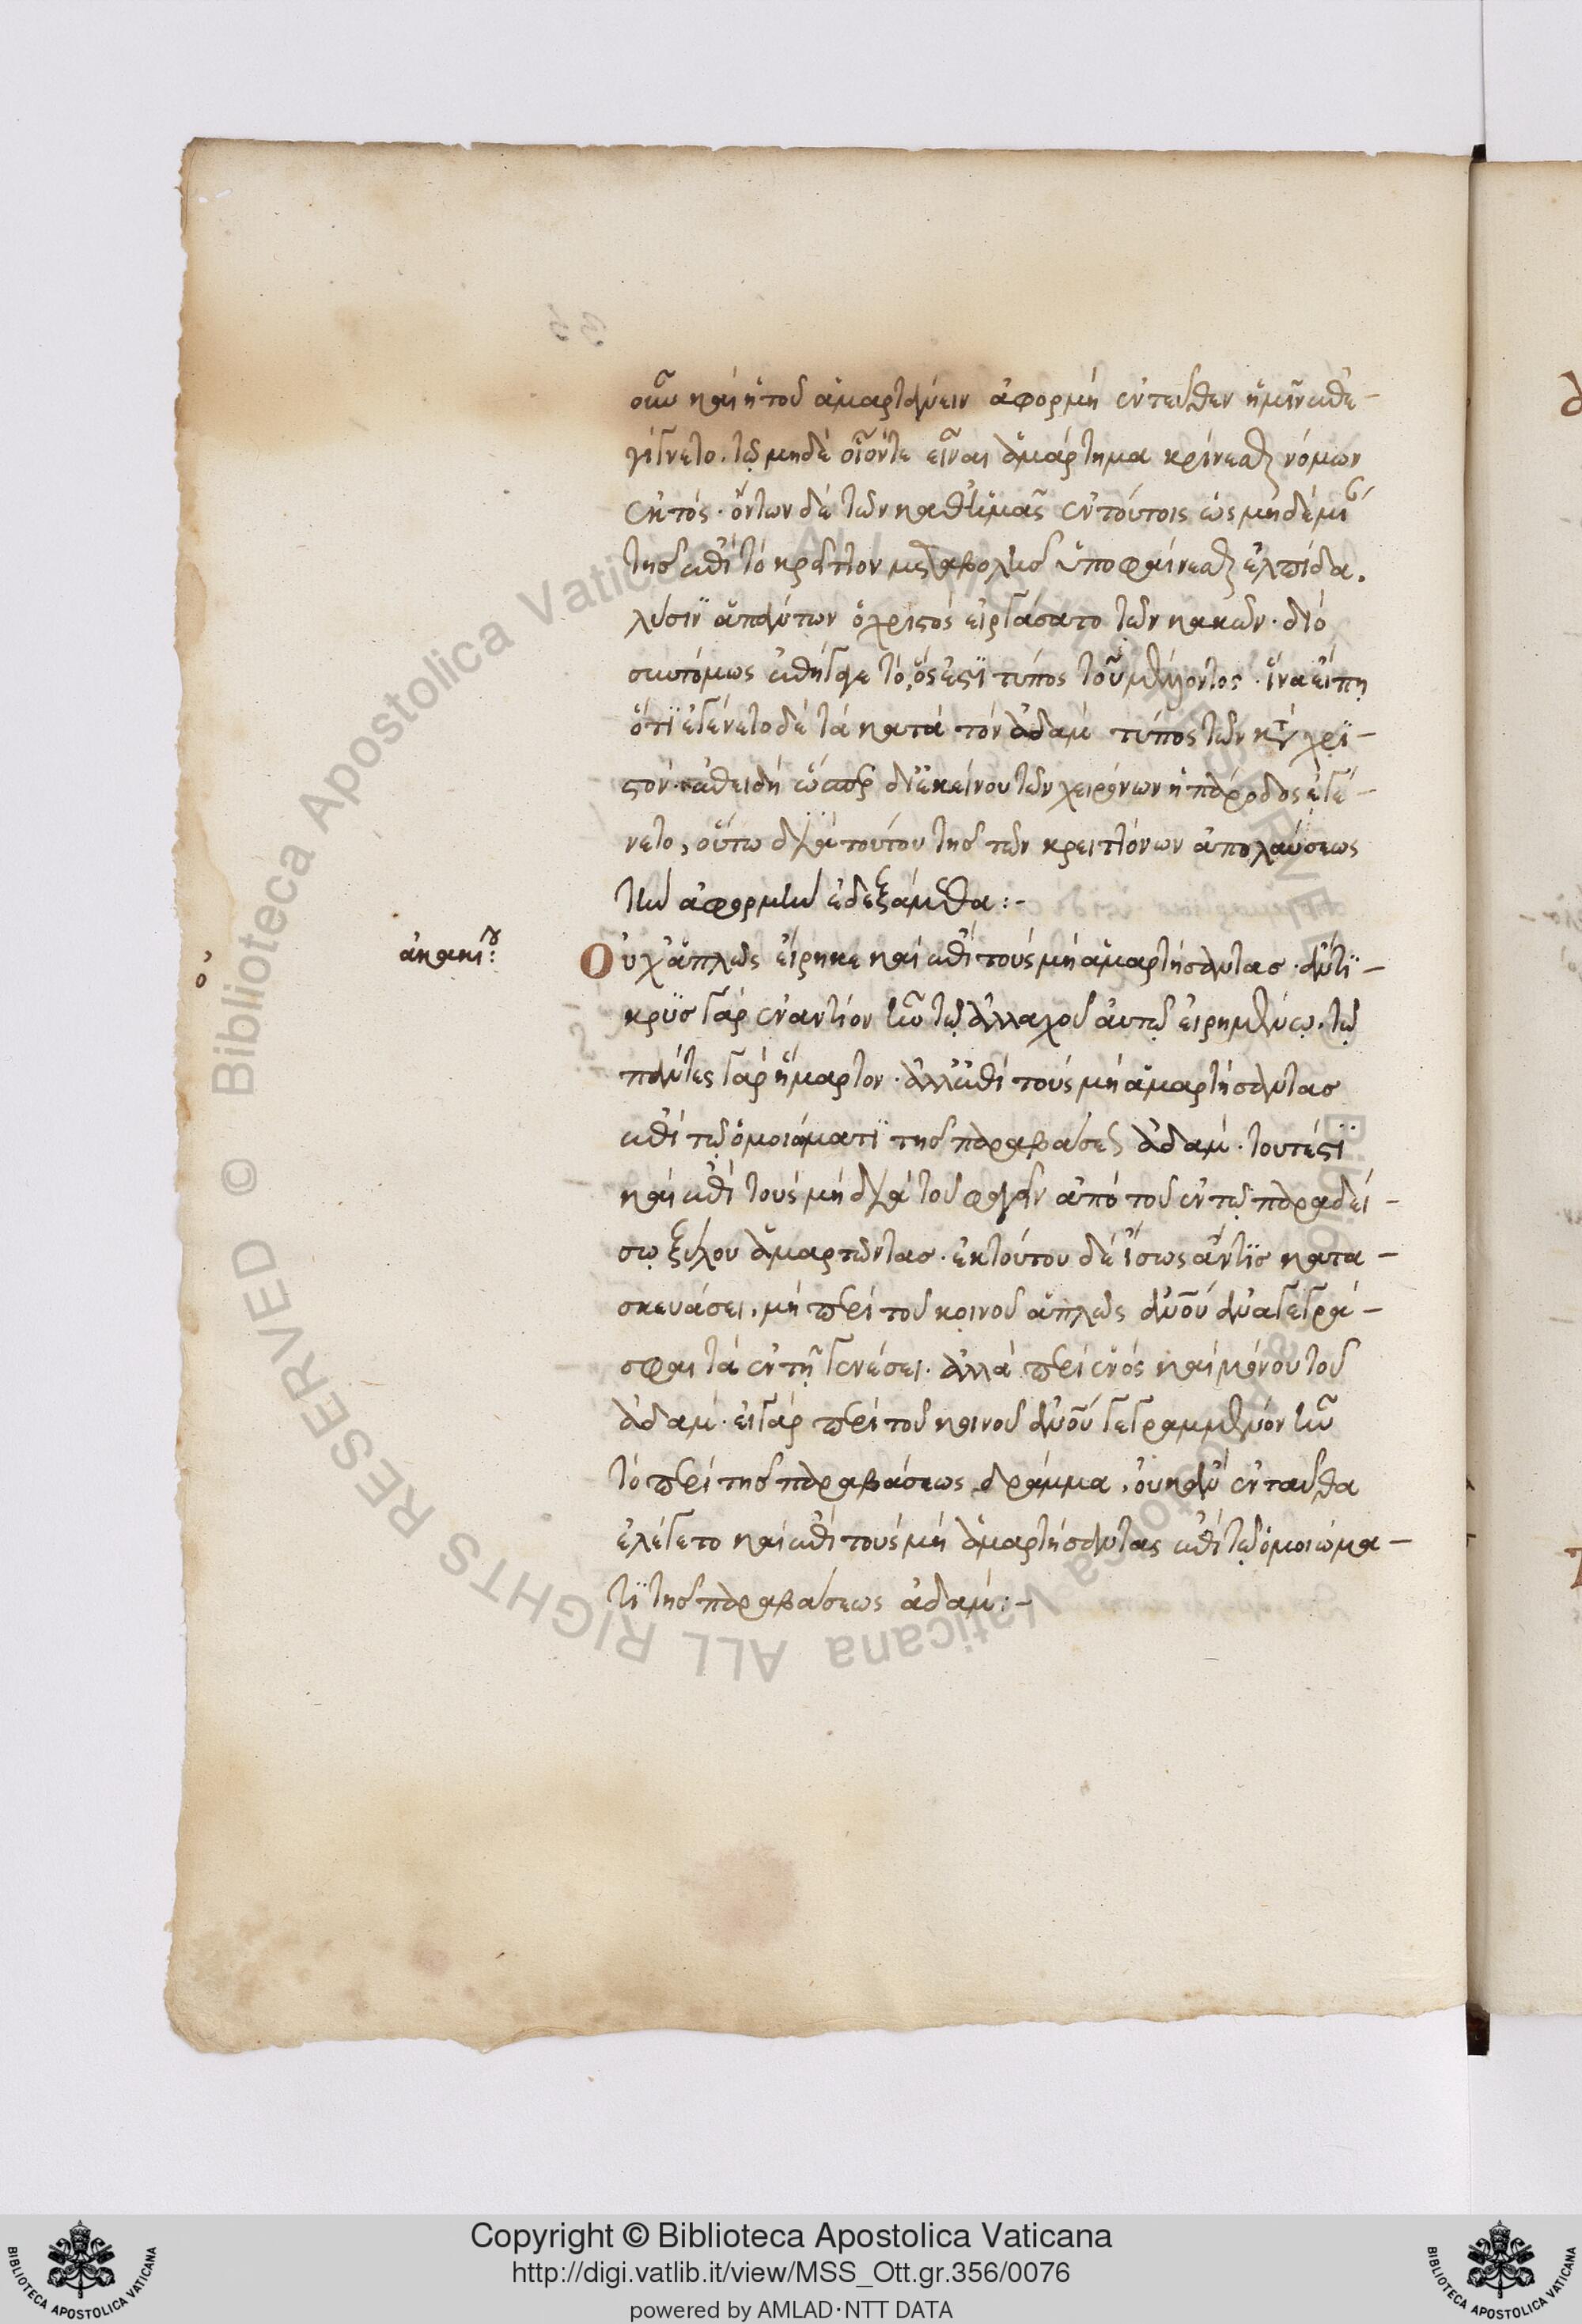 οὖν καὶ ἡ τοῦ ἁμαρτάνειν ἀφορμὴ ἐντεῦθεν ἡμῖν ἐπε-
γίγνετο. τῷ μηδὲ οἷόντε εἶναι ἁμάρτημα κρίνεσθαι νόμων
ἐκτός. ὄντων δὲ τῶν καθ' ἡμᾶς ἐν τούτοις ὡς μηδεμί
τῆς ἐπὶ τὸ κρεῖττον μεταβολῆς ὑποφαίνεσθαι ἐλπίδα.
λύσιν ἁπάντων ὁ χριστὸς εἰργάσατο τῶν κακῶν. διὸ
συντόμως ἐπήγαγε τό, ὅς ἐστι τύπος τοῦ μέλλοντος. ἵνα εἴπῃ
ὅτι ἐγένετο δὲ τὰ κατὰ τὸν ἀδὰμ τύπος τῶν κατὰ χρι-
στόν. ἐπειδὴ ὥσπερ δι' ἐκείνου τῶν χειρόνων ἡ πάροδος ἐγέ-
νετο, οὕτω διὰ τούτου τῆς τῶν κρειττόνων ἀπολαύσεως
τὴν ἀφορμὴν ἐδεξάμεθα:-
ἀκακίου: Οὐχ ἁπλῶς εἴρηκε καὶ ἐπὶ τοὺς μὴ ἁμαρτήσαντας. ἀντι-
ὁ
κρυς γὰρ ἐναντίον ἦν τῷ ἀλλαχοῦ αὐτῷ εἰρημένῳ. τῷ
πάντες γὰρ ἥμαρτον. ἀλλ' ἐπὶ τοὺς μὴ ἁμαρτήσαντας
ἐπὶ τῷ ὁμοιώματι τῆς παραβάσεως ἀδάμ. τουτέστι
καὶ ἐπὶ τοὺς μὴ διὰ τοῦ φαγεῖν ἀπὸ τοῦ ἐν τῷ παραδεί-
σῳ ξύλου ἁμαρτῶντας. ἐκ τούτου δὲ ἴσως ἄν τις κατα-
σκευάσει, μὴ περὶ τοῦ κοινοῦ ἁπλῶς ἀνοῦ ἀναγεγρά-
φαι τὰ ἐν τῇ γενέσει. ἀλλὰ περὶ ἑνὸς καὶ μόνου τοῦ
ἀδάμ. εἰ γὰρ περὶ τοῦ κοινοῦ ἀνοῦ γεγραμμένον ἦν
τὸ περὶ τῆς παραβάσεως δράμμα, οὐκ ἂν ἐνταῦθα
ἐλέγετο καὶ ἐπὶ τοὺς μὴ ἁμαρτήσαντας ἐπὶ τῷ ὁμοιώμα-
τι τῆς παραβάσεως ἀδάμ:-
Copyright © Biblioteca Apostolica Vaticana
http://digi.vatlib.it/view/MSS_Ott.gr.356/0076
powered by AMLAD·NTT DATA